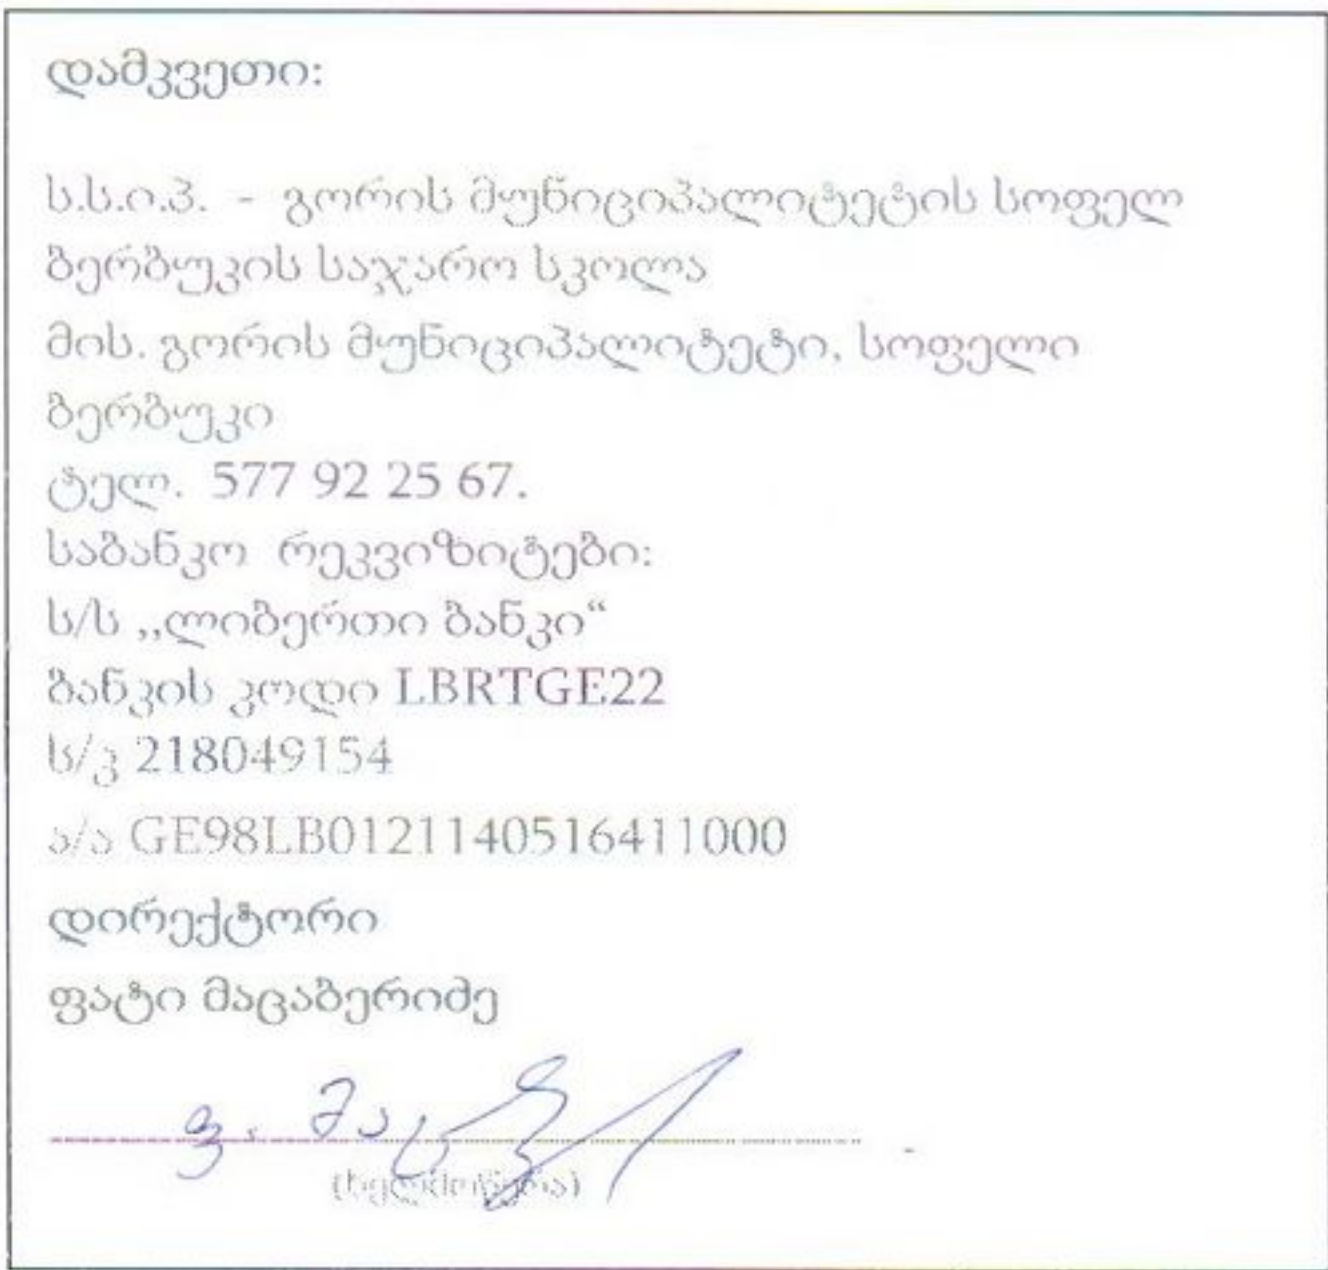 დამკვეთი:
ს.ს.ი.პ. - გორის მუნიციპალიტეტის სოფელ
ბერბუკის საჯარო სკოლა
მის. გორის მუნიციპალიტეტი, სოფელი
ბერბუკი
ტელ. 577 92 25 67.
საბანკო რეკვიზიტები:
ს/ს ,,ლიბერთი ბანკი“
ბანკის კოდი LBRTGE22
ს/კ 218049154
ა/ა GE98LB0121140516411000
დირექტორი
ფატი მაცაბერიძე
(ხელმოწერა)